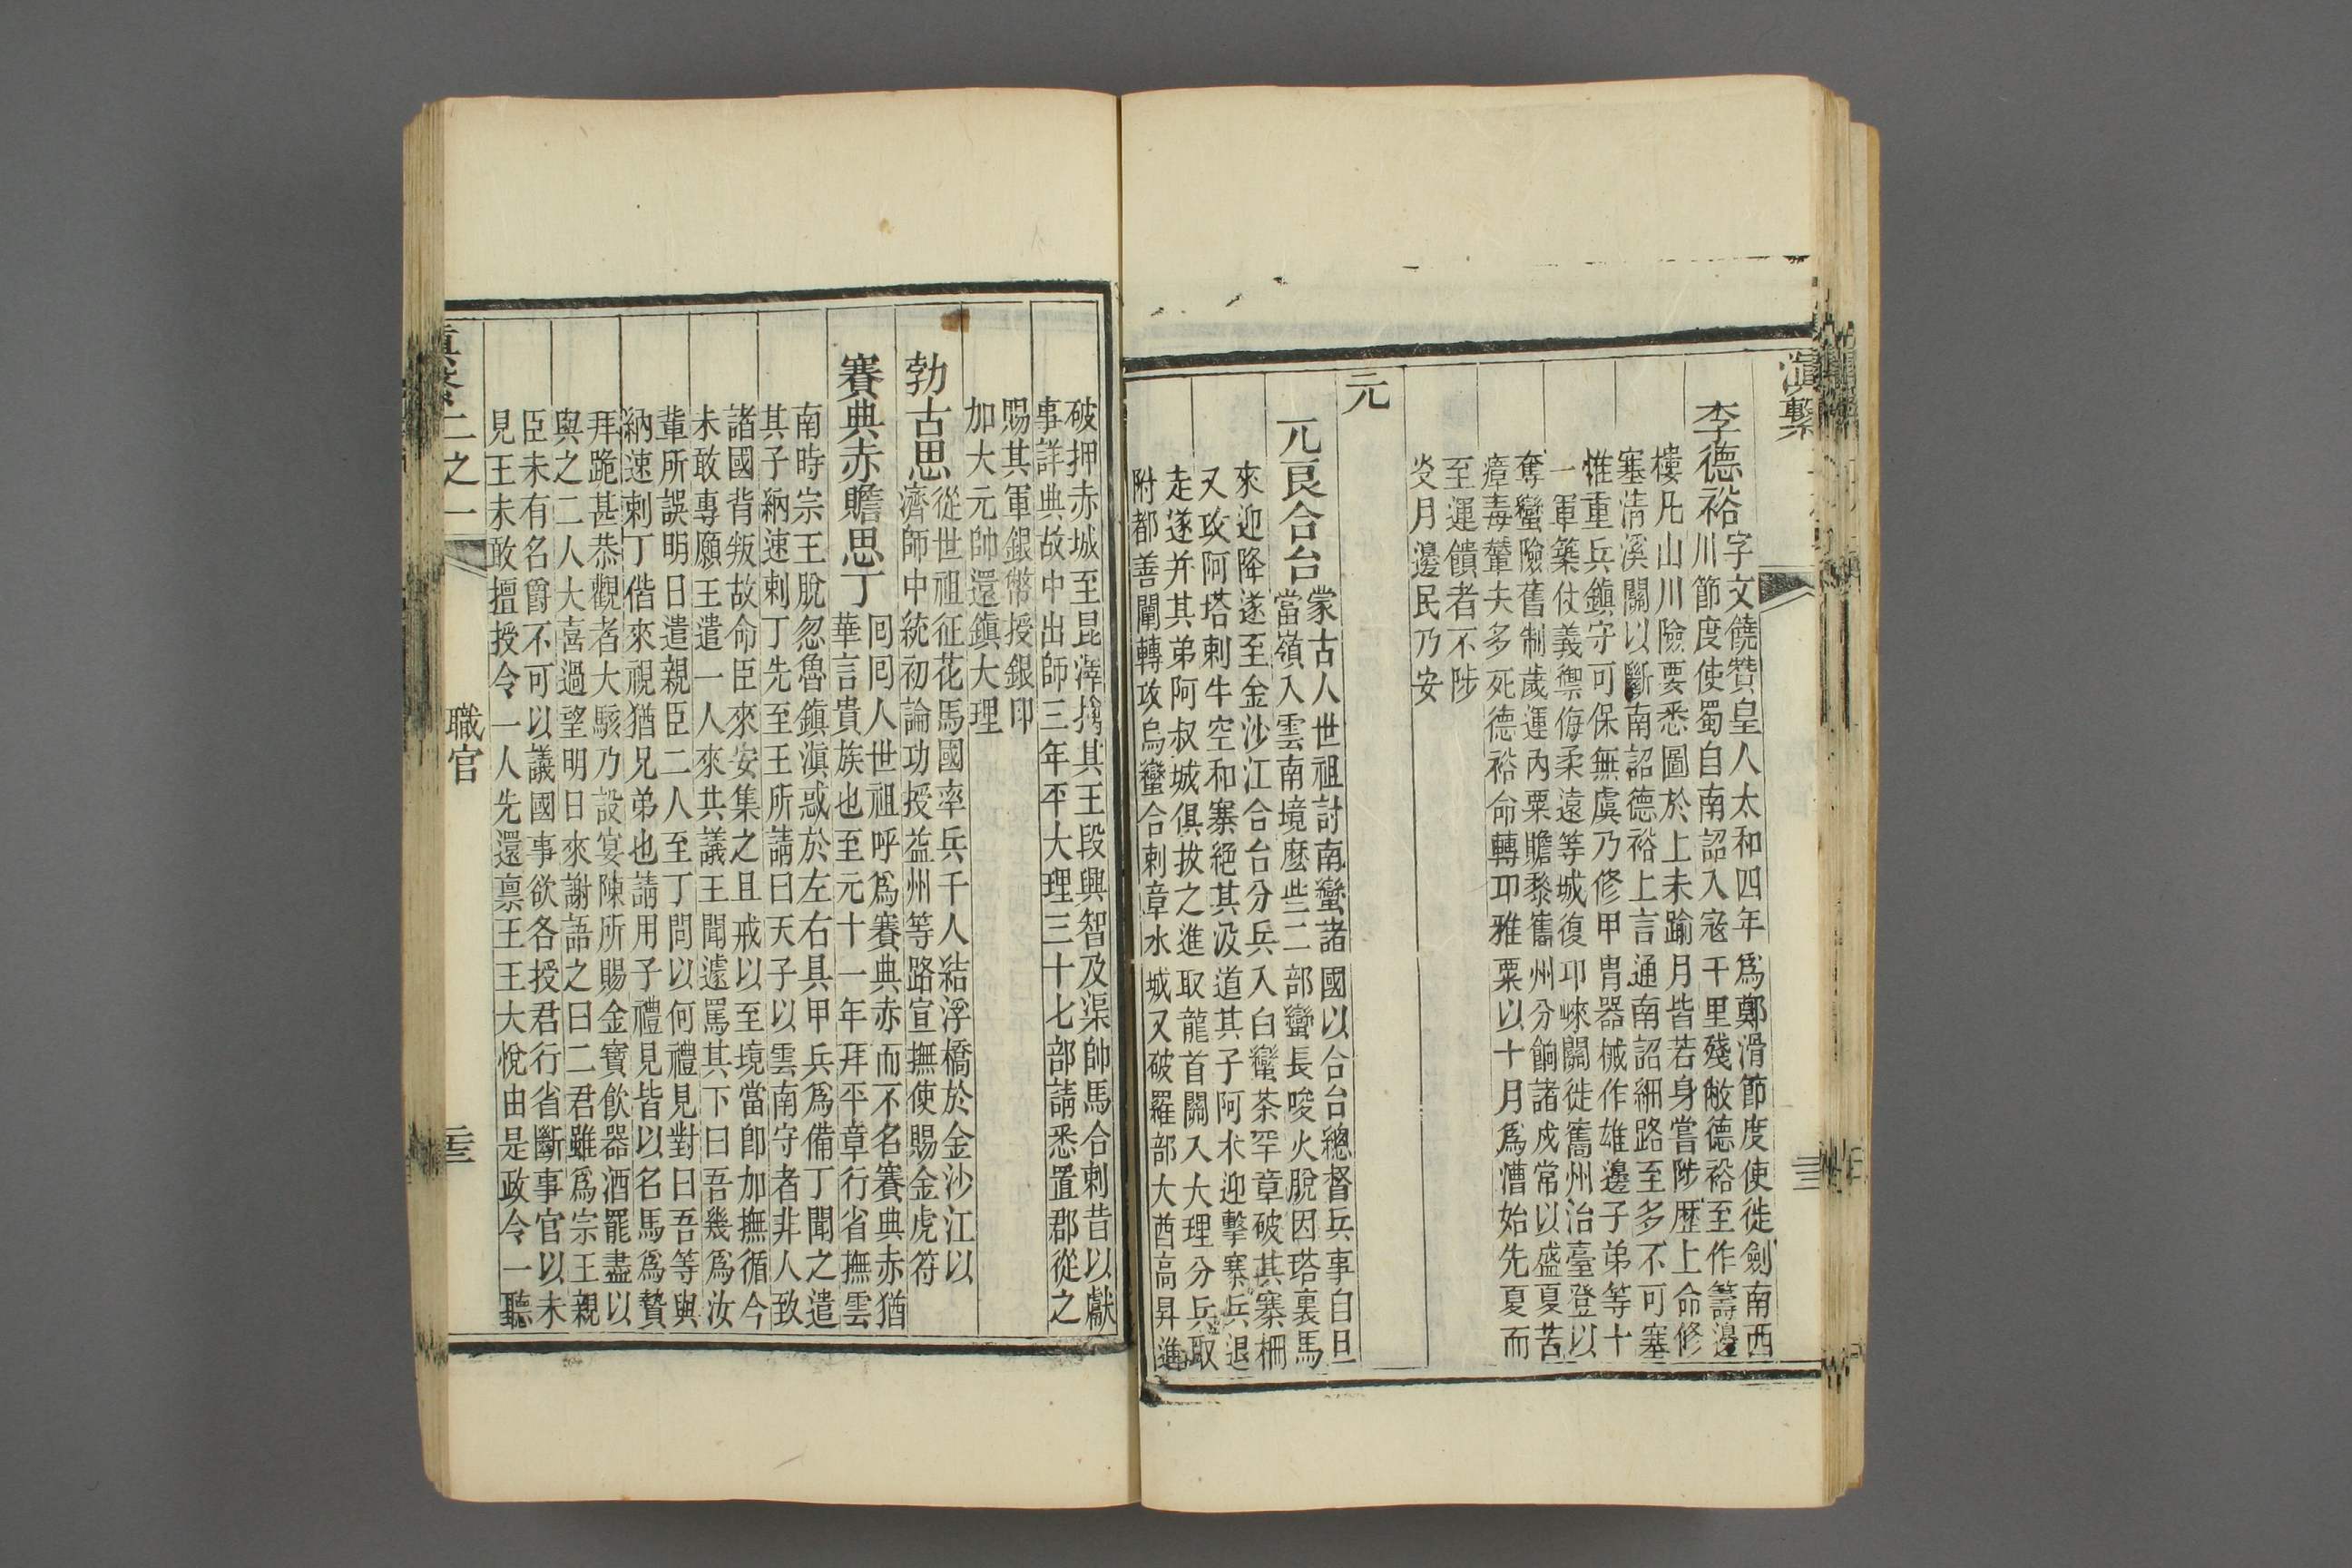 滇繫
李德裕
字文饒贊皇人太和四年為鄭滑節度使徙劍南西
川節度使蜀自南詔入寇千里殘敝德裕至作籌邊
樓凡山川險要悉圖於上未踰月皆若身嘗陟歷上命修
塞清溪關以斷南詔德裕上言通南詔細路至多不可塞
惟重兵鎮守可保無虞乃修甲冑器械作雄邊子弟等十
一軍築仗義禦侮柔遠等城復卭崍關徙巂州治臺登以
奪蠻險舊制歲運內粟贍黎巂州分餉諸戍常以盛夏苦
瘴毒輦夫多死德裕命轉卭雅粟以十月為漕始先夏而
至運饋者不陟
炎月邊民乃安
元
兀良合台
蒙古人世祖討南蠻諸國以合台總督兵事自旦
當嶺入雲南境麼些二部蠻長唆火脫因塔裏馬
來迎降遂至金沙江合台分兵入白蠻茶罕章破其寨柵
又攻阿塔剌牛空和寨絕其汲道其子阿朮迎擊寨兵退
走遂并其弟阿叔城俱拔之進取龍首關入大理分兵取
附都善闡轉攻烏蠻合剌章水城又破羅部大酋高昇進
破押赤城至昆澤擒其王段興智及渠帥馬合剌昔以獻
事詳典故中出師三年平大理三十七部請悉置郡從之
賜其軍銀幣授銀印
加大元帥還鎮大理
勃古思
從世祖征花馬國率兵千人結浮橋於金沙江以
濟師中統初論功授益州等路宣撫使賜金虎符
賽典赤贍思丁
回回人世祖呼為賽典赤而不名賽典赤猶
華言貴族也至元十一年拜平章行省撫雲
南時宗王脫忽魯鎮滇惑於左右具甲兵為備丁聞之遣
其子納速剌丁先至王所請曰天子以雲南守者非人致
諸國背叛故命臣來安集之且戒以至境當即加撫循今
未敢專願王遣一人來共議王聞遽罵其下曰吾幾為汝
輩所誤明日遣親臣二人至丁問以何禮見對曰吾等與
納速剌丁偕來視猶兄弟也請用子禮見皆以名馬為贄
拜跪甚恭觀者大駭乃設宴陳所賜金寶飲器酒罷盡以
與之二人大喜過望明日來謝語之曰二君雖為宗王親
臣未有名爵不可以議國事欲各授君行省斷事官以未
見王未敢擅授令一人先還稟王王大悅由是政令一聽
滇繫二之一
職官
三三